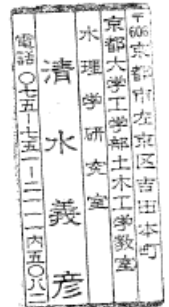 〒606京都市左京区吉田本町
京都大学工学部土木工学教室
水理学研究室
清水義彦
電話〇七五－七五一－二一一一内五〇八二